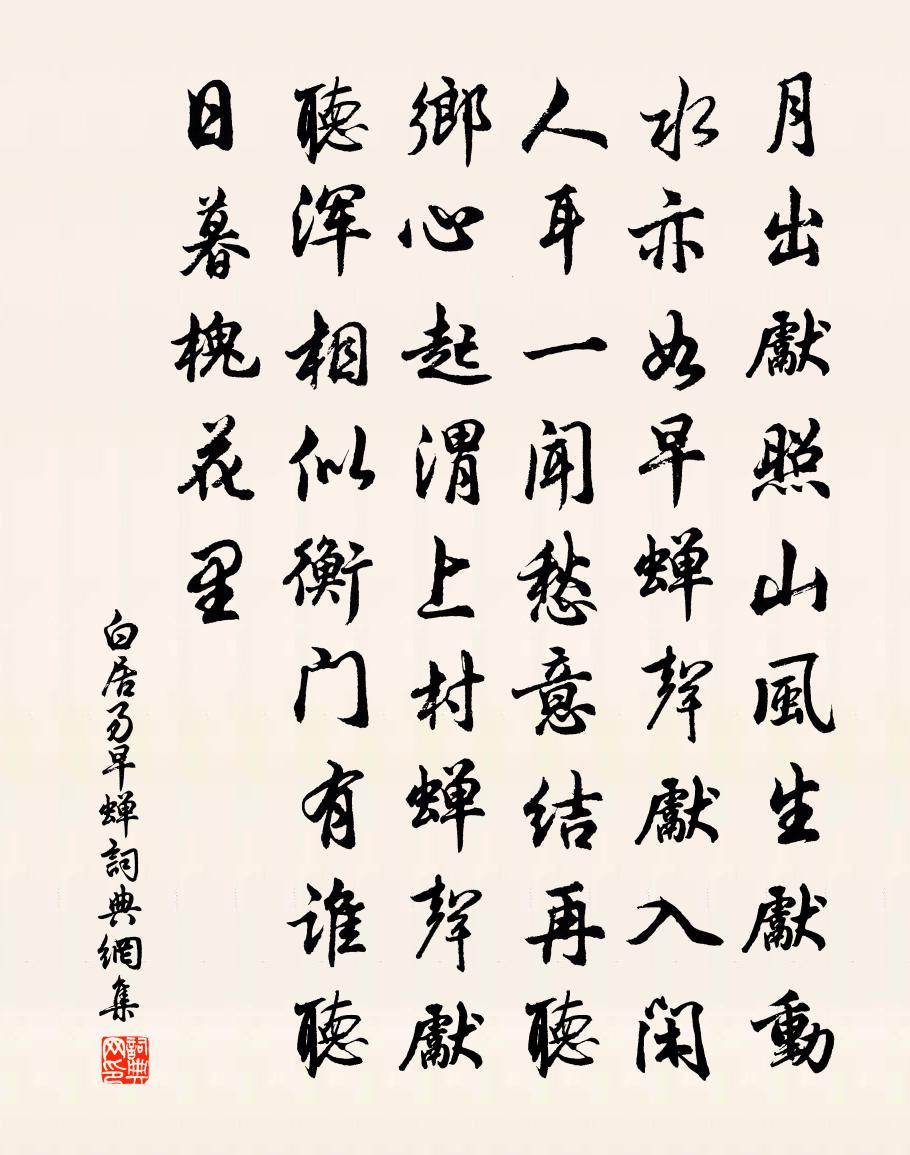 月出獻照山風生獻動
水亦如早蝉聲獻入闲
人耳一闻愁意結再聴
鄉心起渭上村蝉聲獻
聴渾相似衡门有誰聴
日暮槐花里
白居易早蝉詞典網集
詞典网印